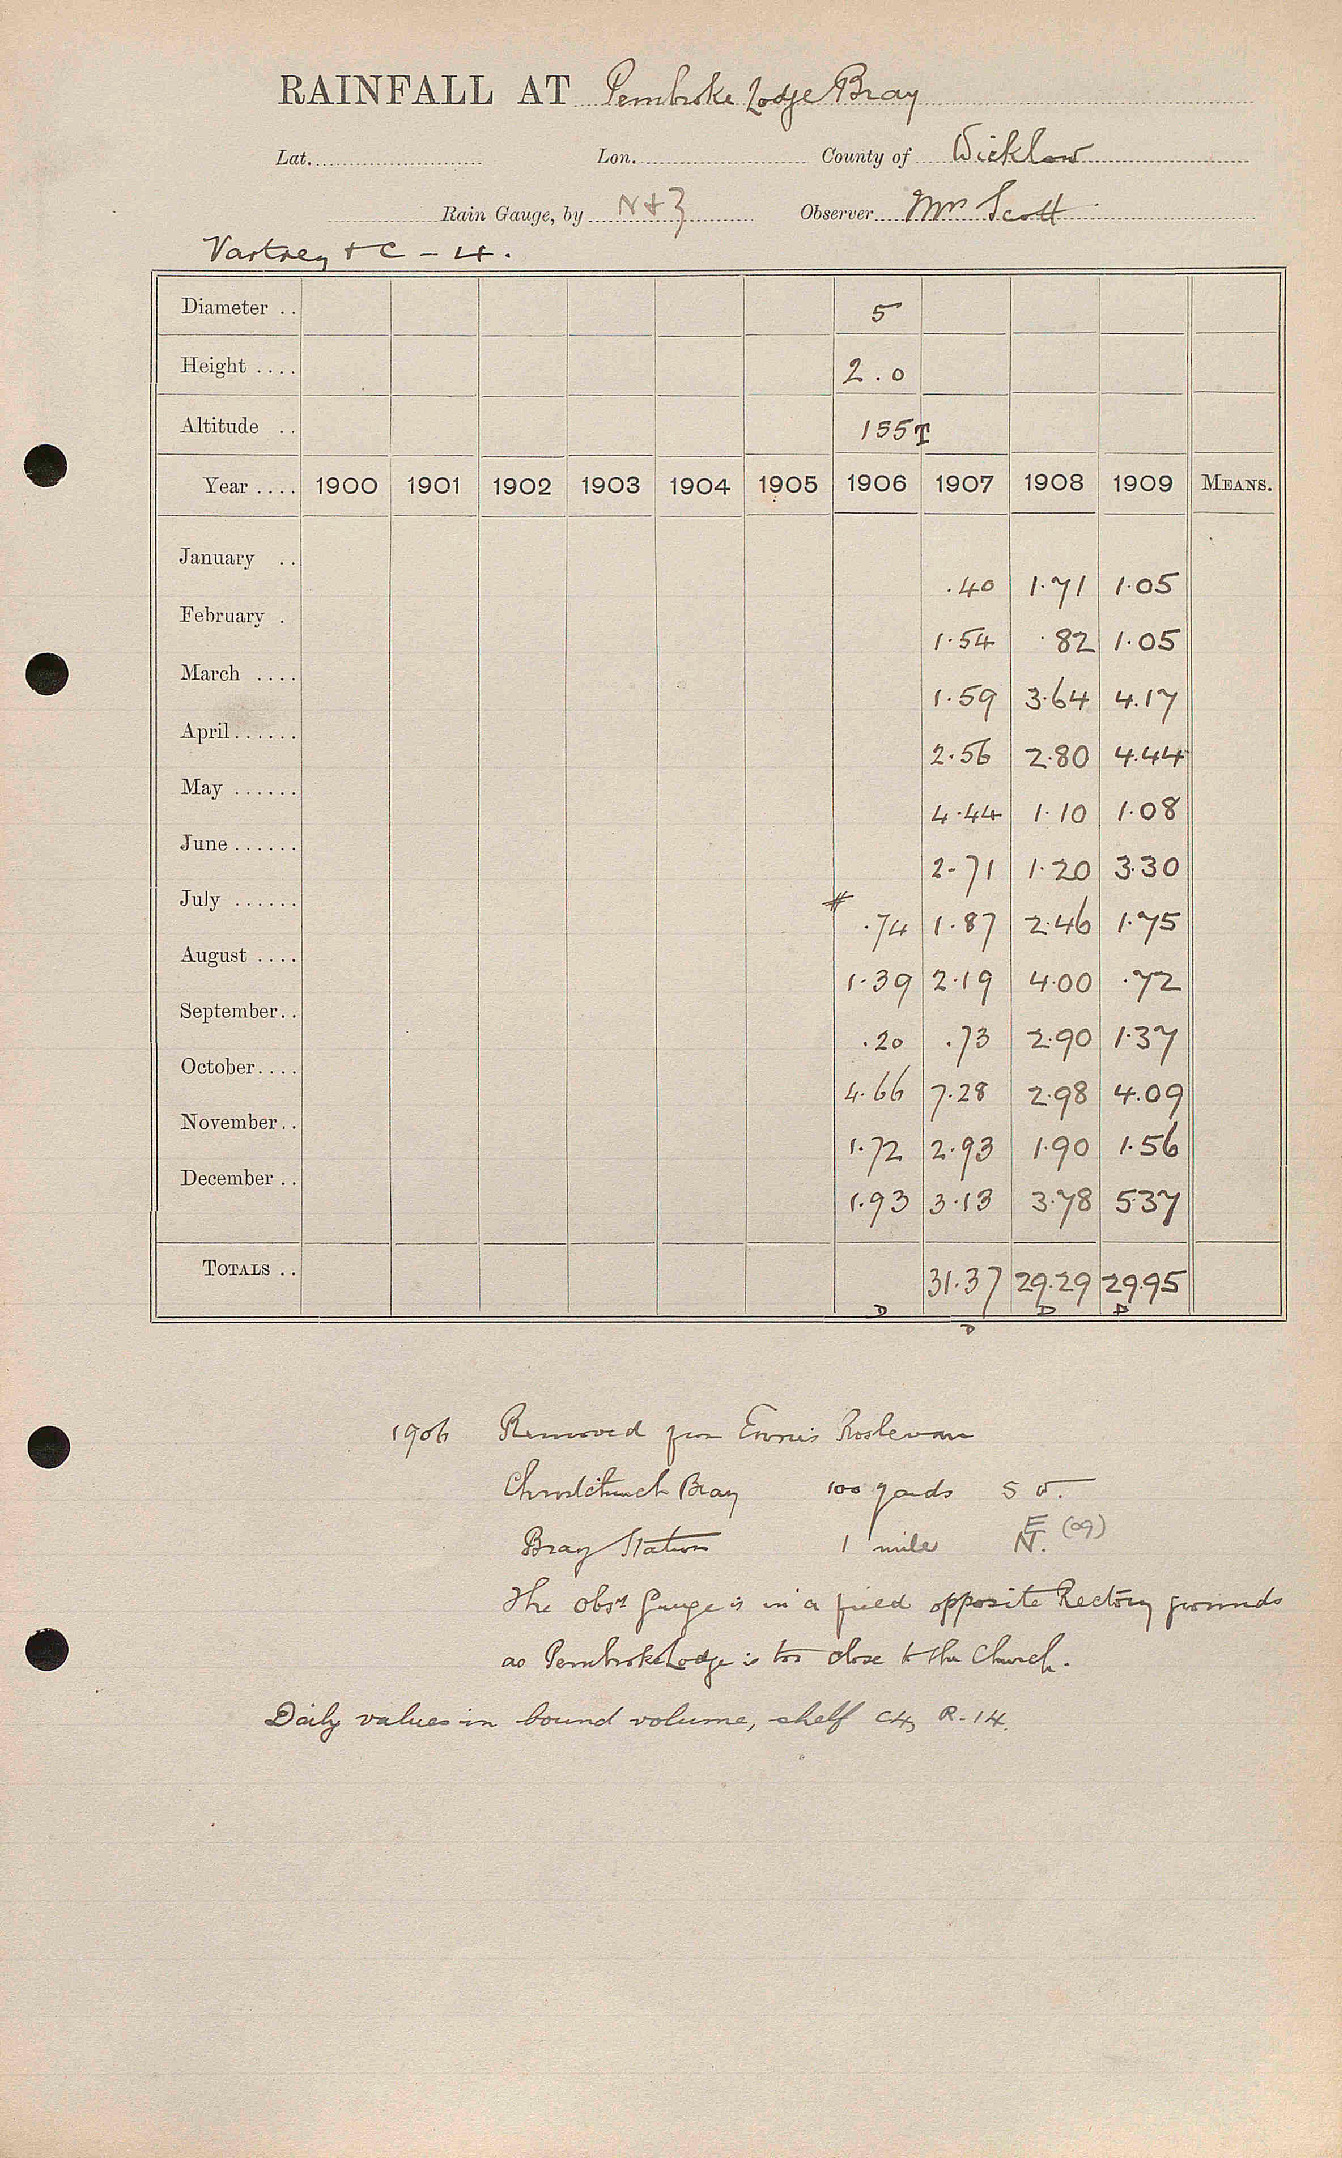 RAINFALL AT Pembroke Lodge Bray
Lat. Lon. County of Wicklow
Rain Gauge, by N+Z Observer Mrs Scott
Vartrey + C - 14.
Diameter .. 5
Height .... 2.0
Altitude .. 155T
Year .... 1900 1901 1902 1903 1904 1905 1906 1907 1908 1909 MEANS.
January .. .40 1.71 1.05
February . 1.54 .82 1.05
March .... 1.59 3.64 4.17
April ...... 2.56 2.80 4.44
May ...... 4.44 1.10 1.08
June ...... 2.71 1.20 3.30
July ...... # .74 1.87 2.46 1.75
August .... 1.39 2.19 4.00 .72
September .. .20 .73 2.90 1.37
October .... 4.66 7.28 2.98 4.09
November .. 1.72 2.93 1.90 1.56
December .. 1.93 3.13 3.78 5.37
TOTALS .. 31.37 29.29 29.95
D D D D
1906 Removed from Ennis Roslevan
Christchurch Bray 100 yards S W.
Bray Station 1 mile N. E (09)
The obsr Gauge is in a field opposite Rectory grounds
as Pembroke Lodge is too close to the Church.
Daily values in bound volume, shelf C4, R-14.